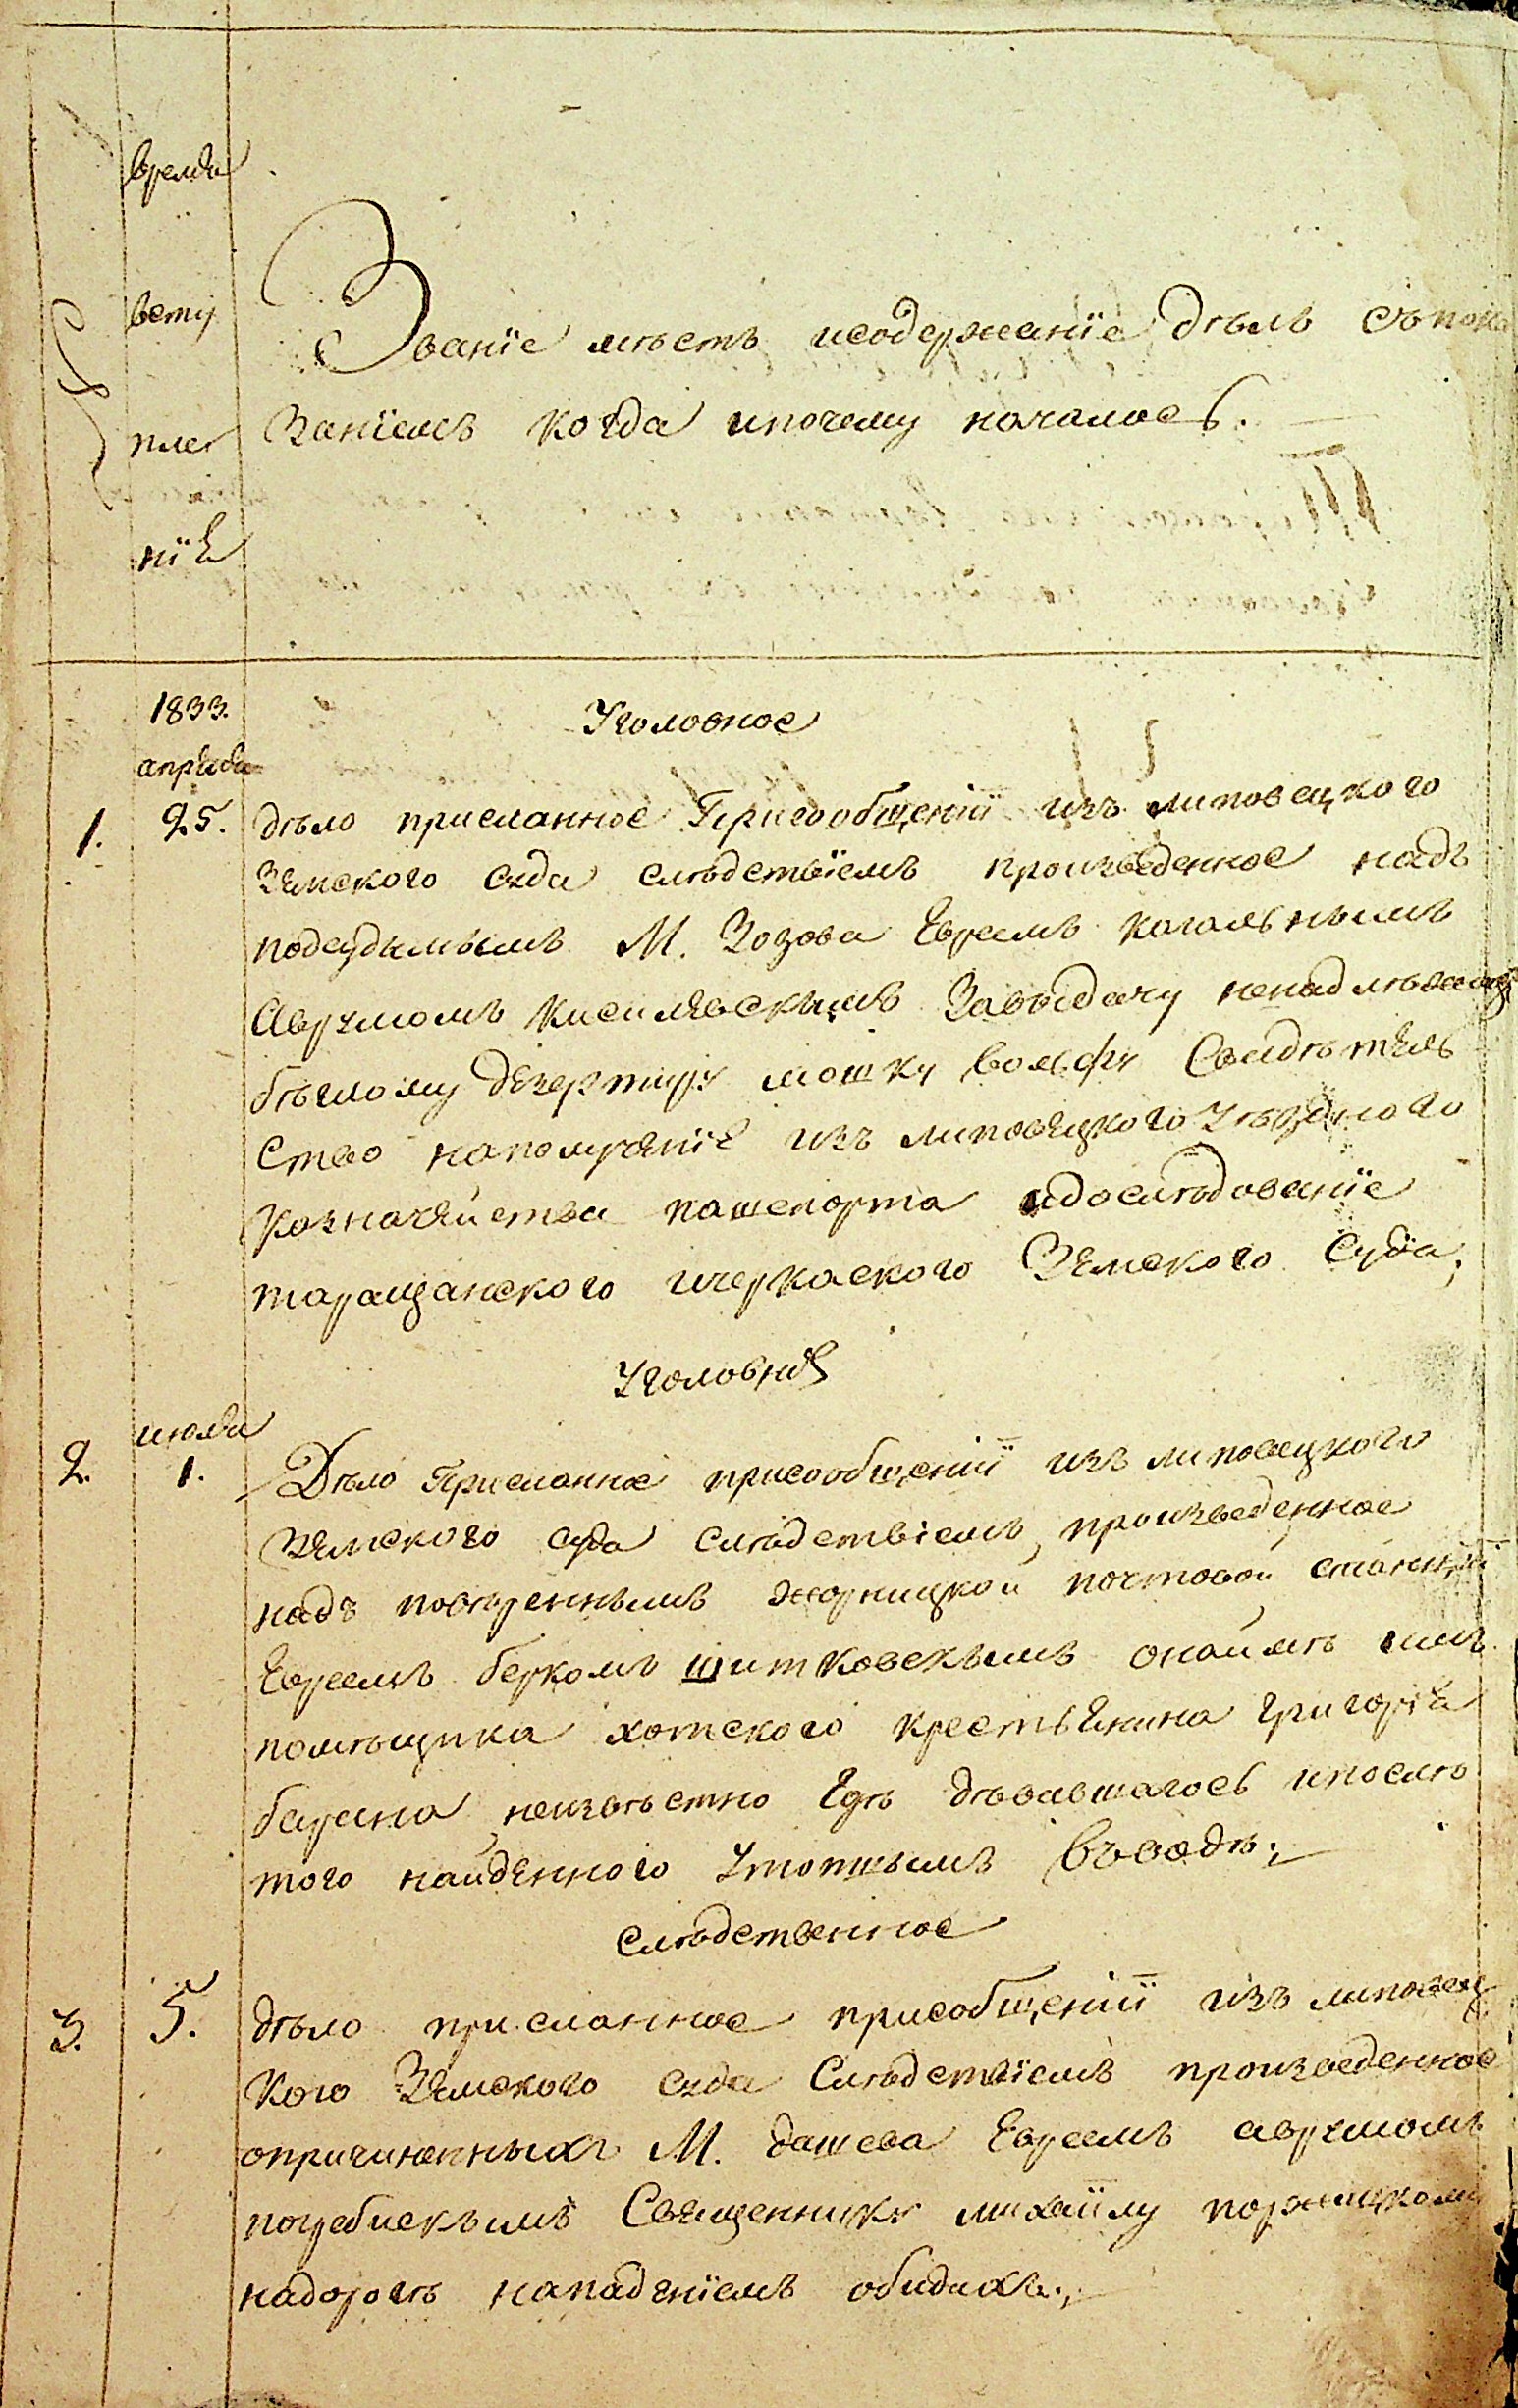 время
всту
пле
нїе
Званїе мѣстъ исодержанїе дѣлъ съпока
Занїемъ когда ипочему началось.
1833.
апреля
Уголовное
1. 25. дѣло присланное Присообщенїи изъ липовецкого
Земского суда слѣдствїемъ произведенное надъ
подсудымымъ М. Зозова Евреемъ кагальнымъ
Аврумомъ кисилевскымъ Завыдачу ненадлѣжащу
бѣглому дезертиру мошку вольфу Свидѣтель
Ство наполученїе изъ липовецкого Уѣздного
Козначейства пашепорта идослѣдованїе
таращанского ичеркаского Земского Суда;
Уголовное
июля
2. 1. Дѣло Присланное присообщенїи изъ липовецкого
Земского суда слѣдствїемъ произведенное
надъ повѣреннымъ жорницкой почтовой станцїи
Евреемъ беркомъ шитковскымъ онаймѣ имъ
помѣщика хотского крестьянина Григорїя
барана неизвѣстно Где дѣвавшагось ипослѣ
того найденного Утопшымъ въводѣ;
слѣдственное
3. 5. дѣло присланное присобщенїи изъ липовец
кого Земского суда Слѣдствїемъ произведенное
опричиненныхъ М. дашева Евреемъ аврумомъ
погребискымъ Священнику михайлу
надорогѣ нападенїемъ обидахъ;